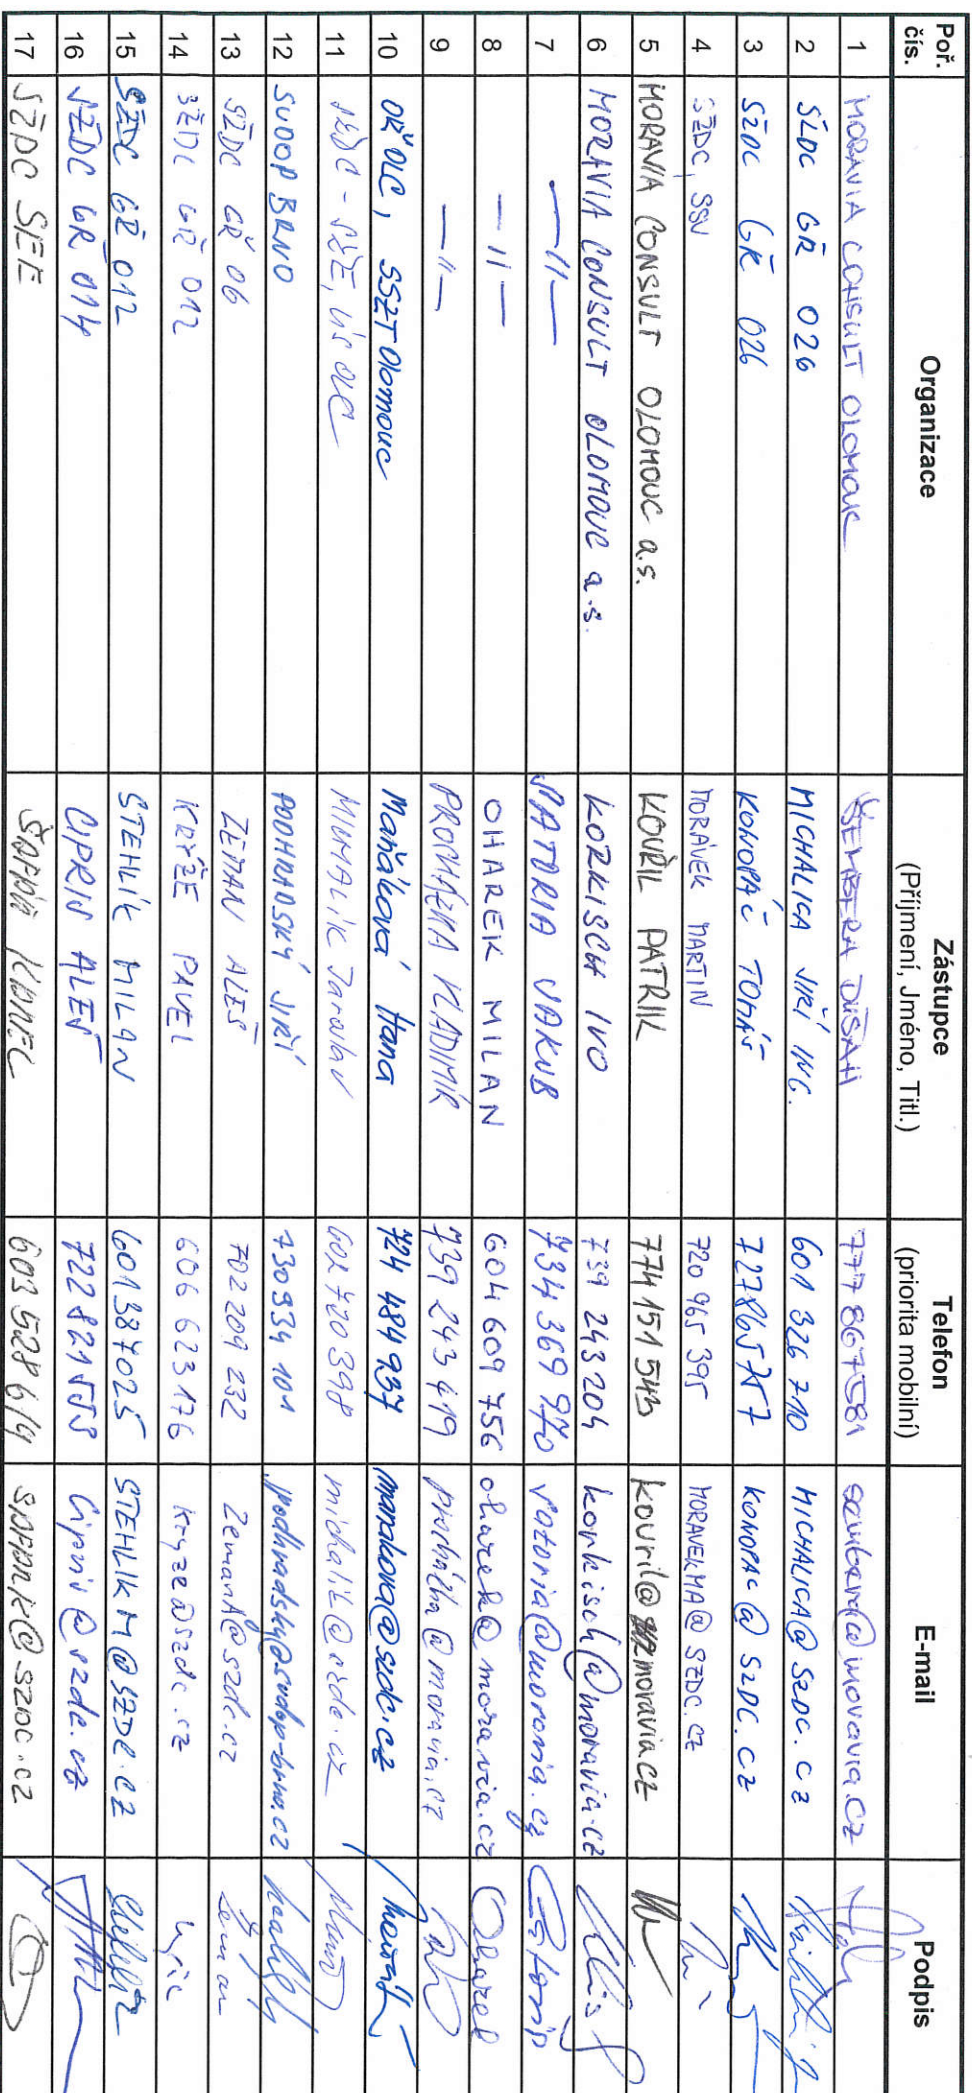 Poř. čís. Organizace Zástupce (Příjmení, Jméno, Titl.) Telefon (priorita mobilní) E-mail Podpis
1 MORAVIA CONSULT OLOMOUC ŠEMBERA DUŠAN 777 867 581 sembera@moravia.cz
2 SŽDC GŘ O26 MICHALICA JIŘÍ ING. 601 326 710 MICHALICA@SZDC.CZ
3 SŽDC GŘ O26 KONOPÁČ TOMÁŠ 727865757 KONOPAC@SZDC.CZ
4 SŽDC, SSV MORÁVEK MARTIN 720 965 395 MORAVEKMA@SZDC.CZ
5 MORAVIA CONSULT OLOMOUC a.s. KOUŘIL PATRIK 774 151 543 kouril@moravia.cz
6 MORAVIA CONSULT OLOMOUC a.s. KORKISCH IVO 739 243 204 korkisch@moravia.cz
7 —11— VATORIA JAKUB 734 369 970
8 —11— OHAREK MILAN 604 609 756 oharek@moravia.cz Oharek
9 —11— PROCHÁZKA VLADIMÍR 739 243 419 prochazka@moravia.cz
10 OŘ OLC, SSZT Olomouc Maňáková Hana 724 484 937 manakova@szdc.cz
11 MICHALÍK Jaroslav 602 720 398 michalik@szdc.cz
12 SUDOP BRNO PODHRADSKÝ JIŘÍ 730934 101 podhradsky@sudop-brno.cz
13 SŽDC GŘ O6 ZEMAN ALEŠ 702 209 232 ZemanA@szdc.cz Zeman
14 SŽDC GŘ O12 KRÝŽE PAVEL 606 623 176 Kryze@szdc.cz
15 SŽDC GŘ O12 STEHLÍK MILAN 601387025 STEHLIKM@SZDC.CZ
16 SŽDC GŘ O14 CIPRIS ALEŠ 722 821 555 Cipris@szdc.cz
17 SŽDC SEE 603 528 614